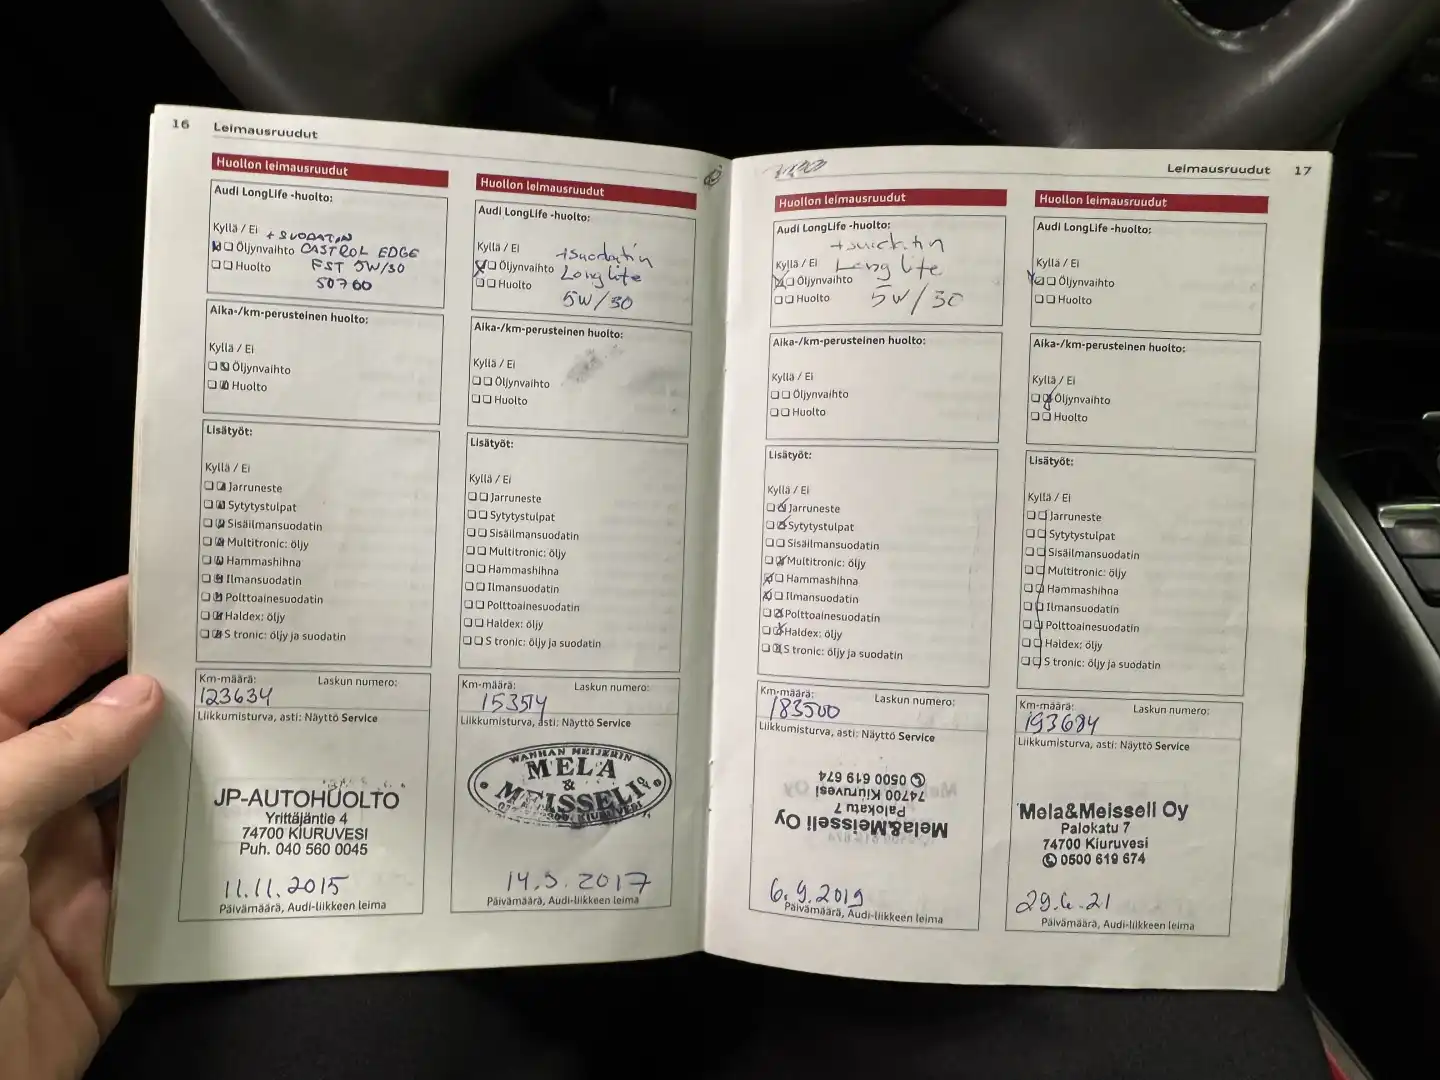 16 Leimausruudut
Huollon leimausruudut
Audi LongLife -huolto:
Kyllä / Ei + SUODATIN
Öljynvaihto CASTROL EDGE
Huolto FST 5W/30
50700
Aika-/km-perusteinen huolto:
Kyllä / Ei
Öljynvaihto
Huolto
Lisätyöt:
Kyllä / Ei
Jarruneste
Sytytystulpat
Sisäilmansuodatin
Multitronic: öljy
Hammashihna
Ilmansuodatin
Polttoainesuodatin
Haldex: öljy
S tronic: öljy ja suodatin
Km-määrä: Laskun numero:
123634
Liikkumisturva, asti: Näyttö Service
JP-AUTOHUOLTO
Yrittäjäntie 4
74700 KIURUVESI
Puh. 040 560 0045
11.11.2015
Päivämäärä, Audi-liikkeen leima
Huollon leimausruudut
Audi LongLife -huolto:
Kyllä / Ei +suodatin
Öljynvaihto Longlife
Huolto
5W/30
Aika-/km-perusteinen huolto:
Kyllä / Ei
Öljynvaihto
Huolto
Lisätyöt:
Kyllä / Ei
Jarruneste
Sytytystulpat
Sisäilmansuodatin
Multitronic: öljy
Hammashihna
Ilmansuodatin
Polttoainesuodatin
Haldex: öljy
S tronic: öljy ja suodatin
Km-määrä: Laskun numero:
153514
Liikkumisturva, asti: Näyttö Service
WANHAN MEIJERIN
MELA
&
MEISSELI
14.5.2017
Päivämäärä, Audi-liikkeen leima
Leimausruudut 17
Huollon leimausruudut
Audi LongLife -huolto:
+suodatin
Kyllä / Ei Long life
Öljynvaihto
Huolto 5W/30
Aika-/km-perusteinen huolto:
Kyllä / Ei
Öljynvaihto
Huolto
Lisätyöt:
Kyllä / Ei
Jarruneste
Sytytystulpat
Sisäilmansuodatin
Multitronic: öljy
Hammashihna
Ilmansuodatin
Polttoainesuodatin
Haldex: öljy
S tronic: öljy ja suodatin
Km-määrä: Laskun numero:
183500
Liikkumisturva, asti: Näyttö Service
Mela&Meisseli Oy
Palokatu 7
74700 Kiuruvesi
0500 619 674
6.9.2019
Päivämäärä, Audi-liikkeen leima
Huollon leimausruudut
Audi LongLife -huolto:
Kyllä / Ei
Öljynvaihto
Huolto
Aika-/km-perusteinen huolto:
Kyllä / Ei
Öljynvaihto
Huolto
Lisätyöt:
Kyllä / Ei
Jarruneste
Sytytystulpat
Sisäilmansuodatin
Multitronic: öljy
Hammashihna
Ilmansuodatin
Polttoainesuodatin
Haldex: öljy
S tronic: öljy ja suodatin
Km-määrä: Laskun numero:
193684
Liikkumisturva, asti: Näyttö Service
Mela&Meisseli Oy
Palokatu 7
74700 Kiuruvesi
0500 619 674
29.6.21
Päivämäärä, Audi-liikkeen leima